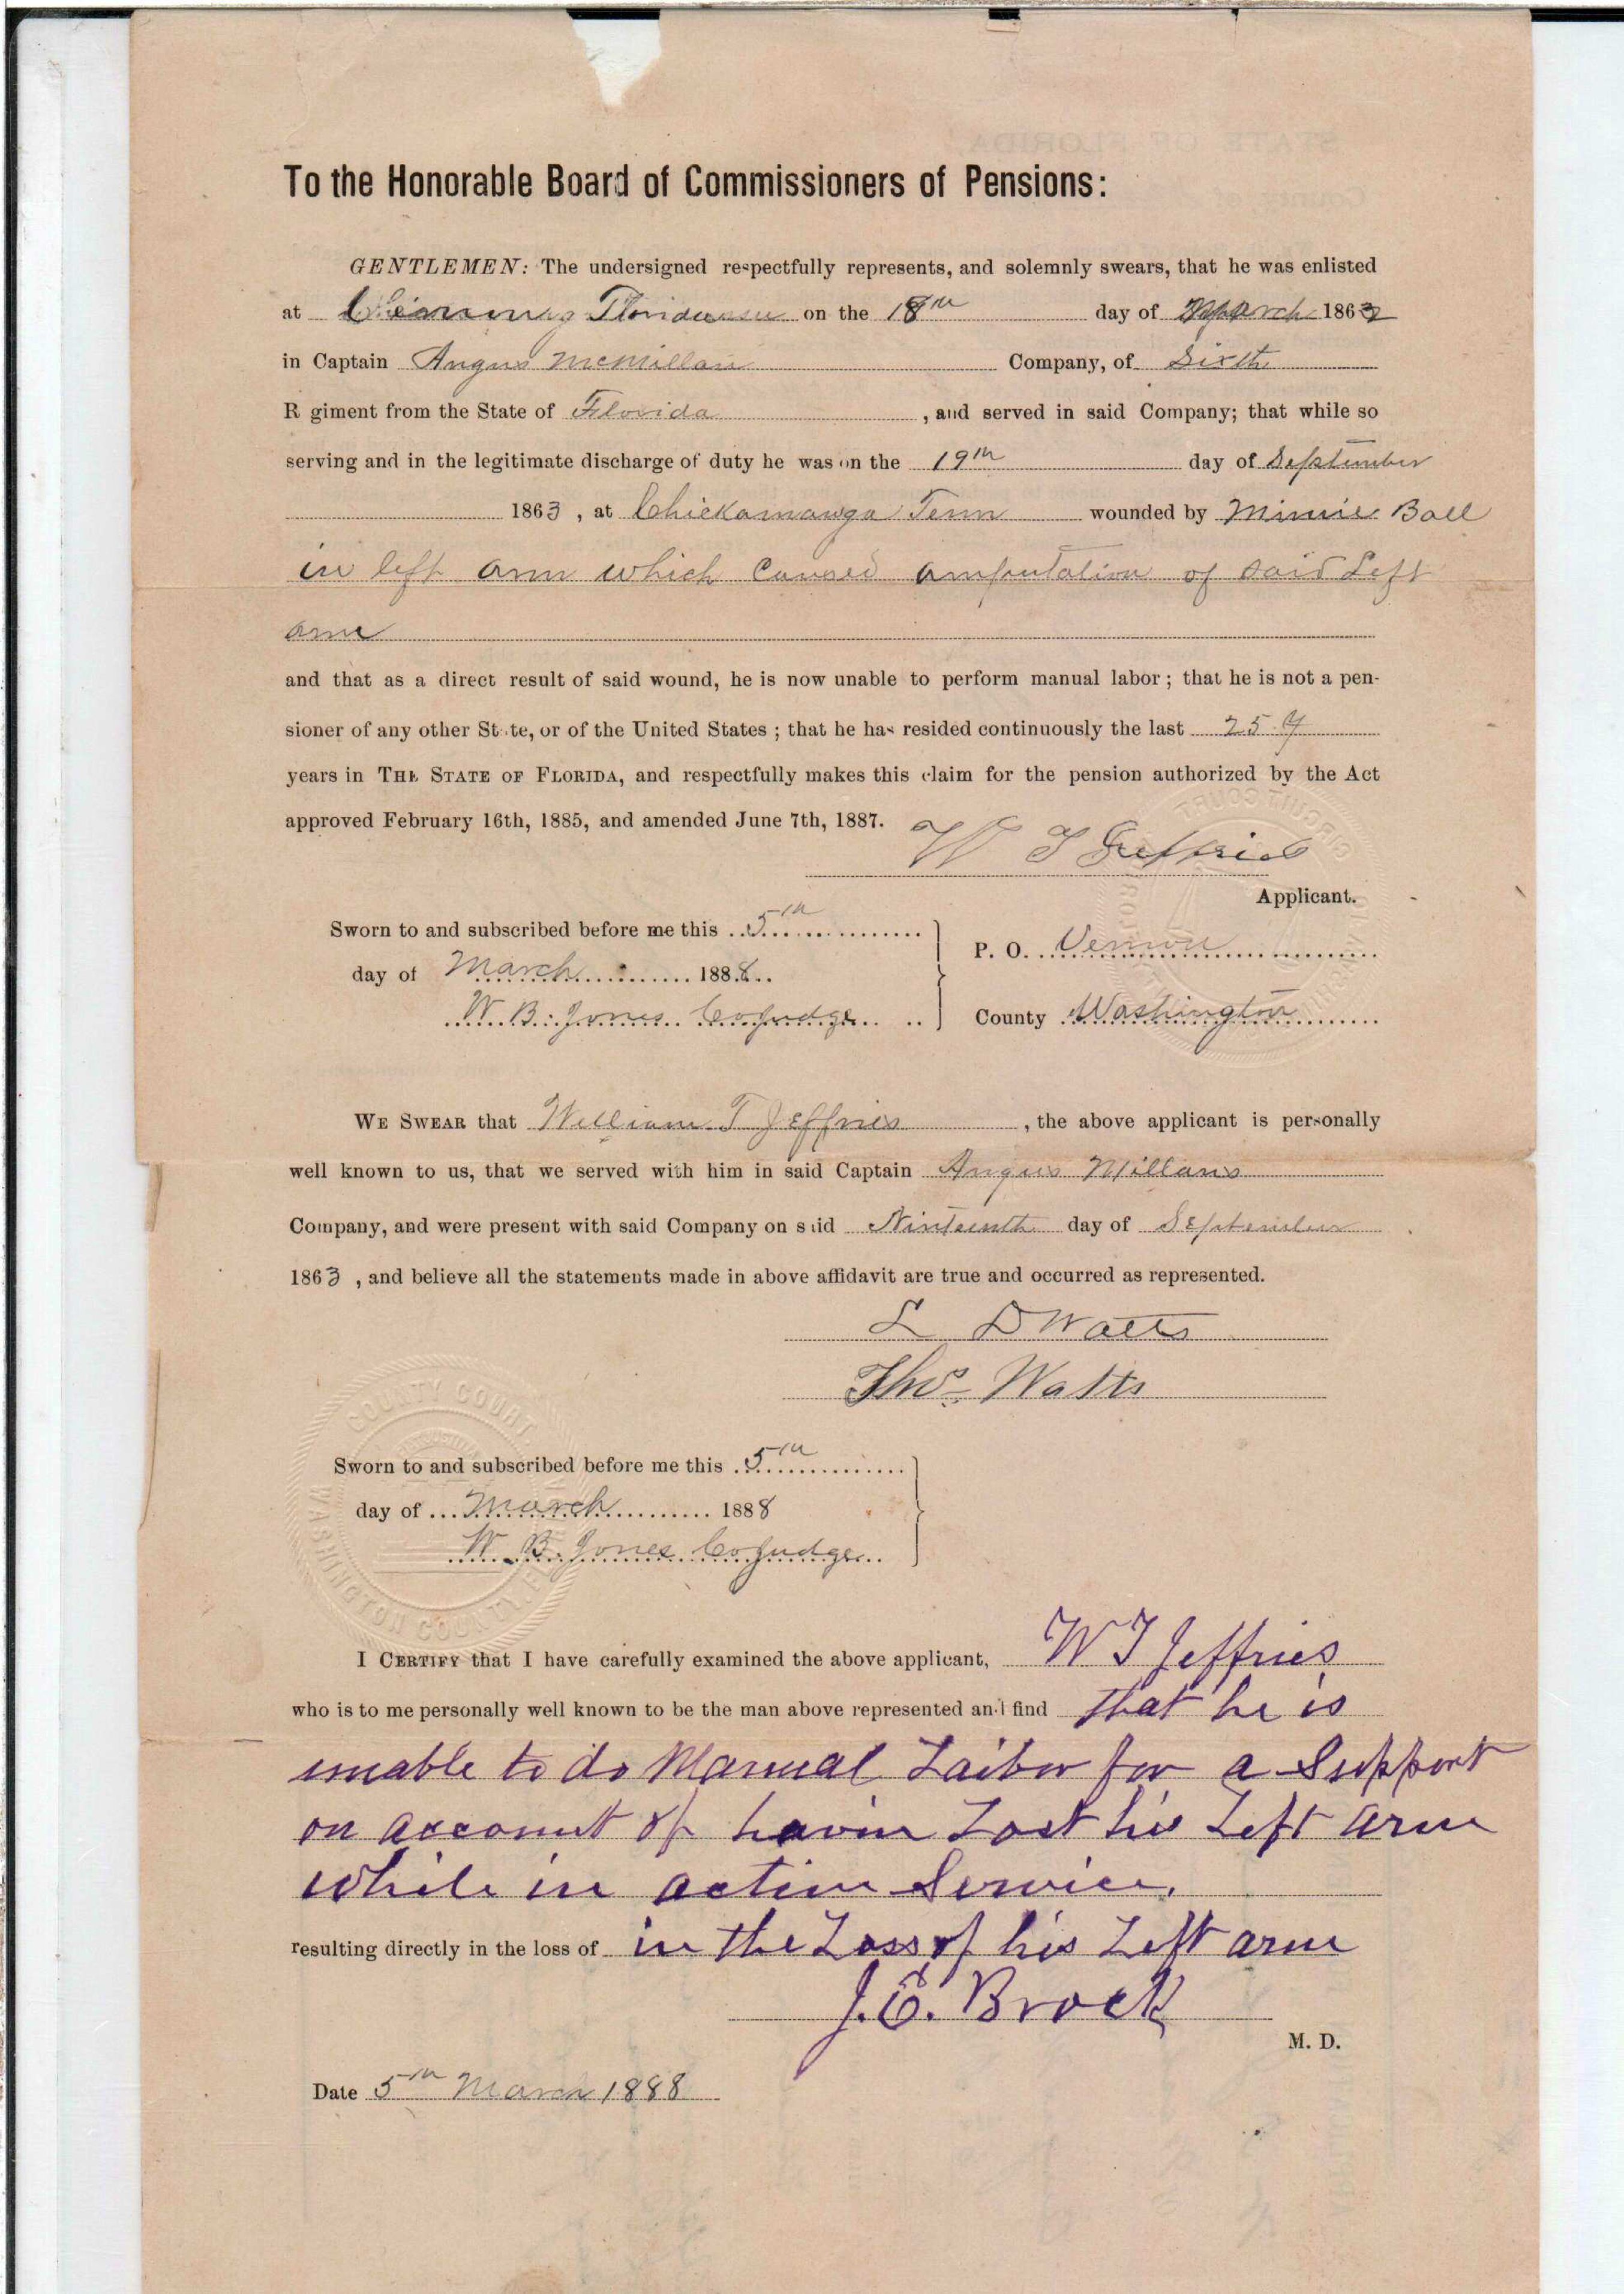 To the Honorable Board of Commissioners of Pensions:
GENTLEMEN: The undersigned respectfully represents, and solemnly swears, that he was enlisted
at on the 18th day of March 1862
in Captain Angus McMillan Company, of Sixth
R giment from the State of Florida , and served in said Company; that while so
serving and in the legitimate discharge of duty he was on the 19th day of September
1863 , at Chickamauga Tenn wounded by Minnie Ball
in left arm which caused amputation of said Left
arm
and that as a direct result of said wound, he is now unable to perform manual labor; that he is not a pen-
sioner of any other St te, or of the United States; that he has resided continuously the last 25 y
years in THE STATE OF FLORIDA, and respectfully makes this claim for the pension authorized by the Act
approved February 16th, 1885, and amended June 7th, 1887.
W T Jeffries
Applicant.
Sworn to and subscribed before me this 5th
day of March 1888
W. B. Jones Co Judge
P. O. Vernon
County Washington
WE SWEAR that William T Jeffries , the above applicant is personally
well known to us, that we served with him in said Captain Angus Millans
Company, and were present with said Company on said Ninteenth day of September
1863 , and believe all the statements made in above affidavit are true and occurred as represented.
L D Watts
Thos Watts
Sworn to and subscribed before me this 5th
day of March 1888
W. B. Jones Co Judge
COUNTY COURT
WASHINGTON COUNTY, FLA
I CERTIFY that I have carefully examined the above applicant, W T Jeffries
who is to me personally well known to be the man above represented and find that he is
unable to do Manual Laibor for a Support
on account of havin Lost his Left arm
while in active Service.
resulting directly in the loss of in the Loss of his Left arm
J. E. Brock
M. D.
Date 5th March 1888